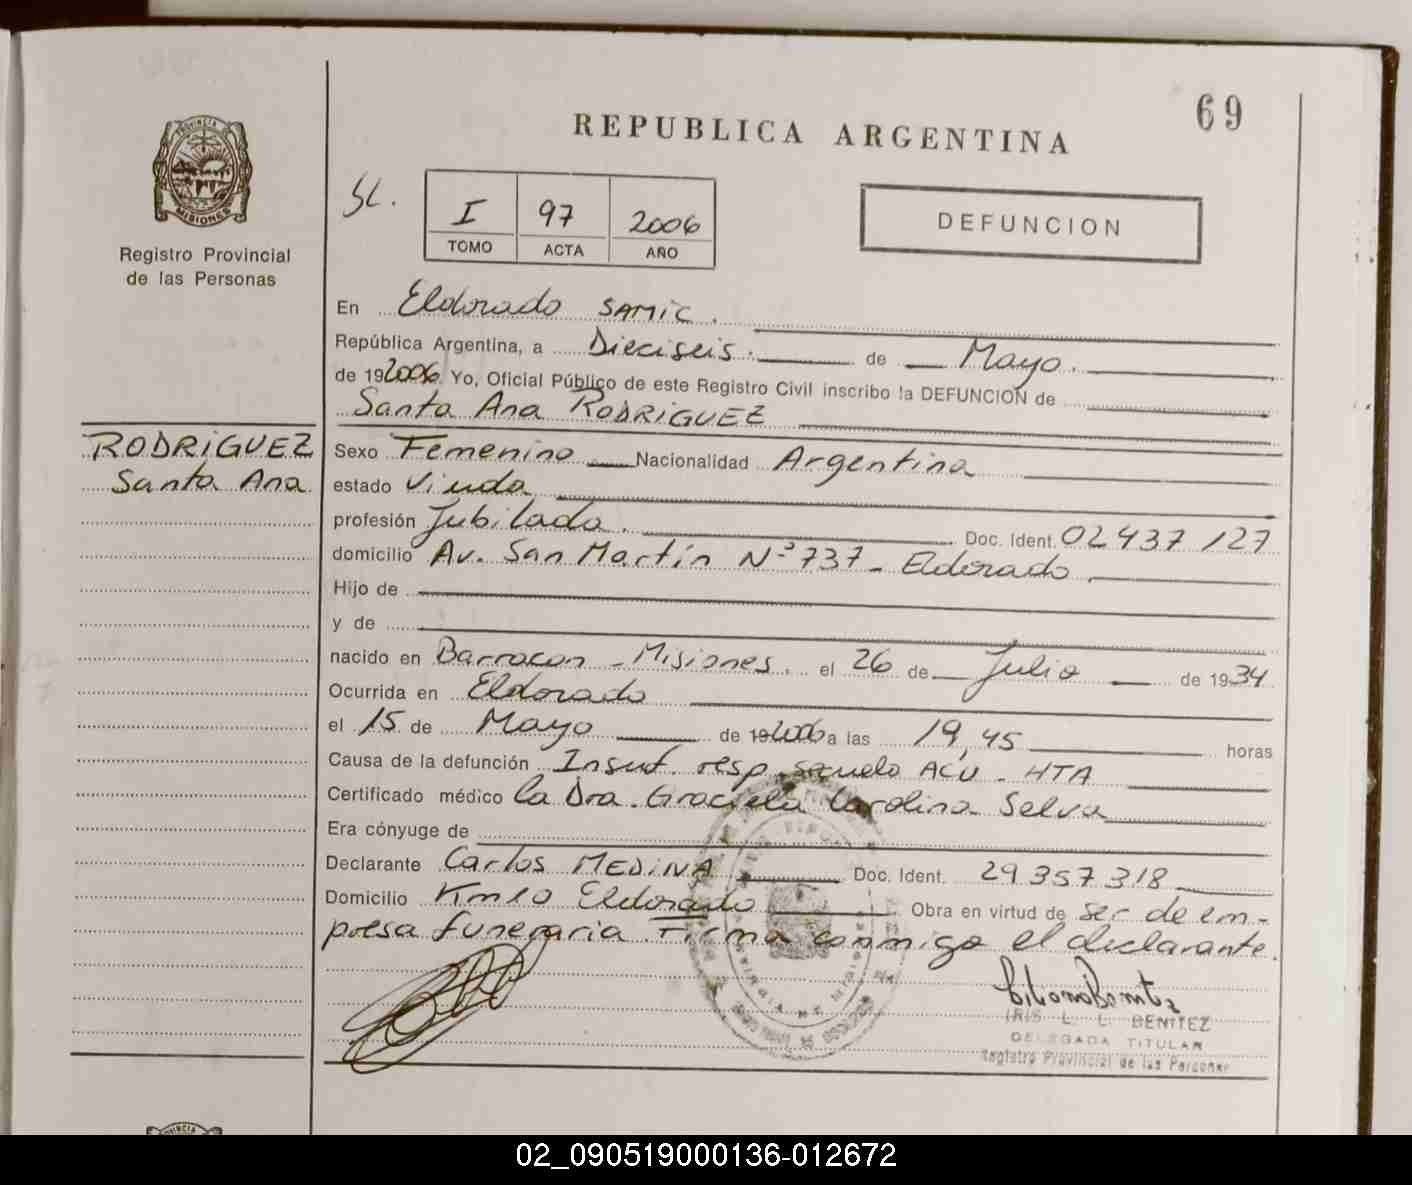 69
REPUBLICA ARGENTINA
PROVINCIA DE
MISIONES
Registro Provincial
de las Personas
I 97 2006
TOMO ACTA AÑO
DEFUNCION
En Eldorado SAMIC.
República Argentina, a Dieciseis. de Mayo.
de 192006. Yo, Oficial Público de este Registro Civil inscribo la DEFUNCION de
Santa Ana RODRIGUEZ
RODRIGUEZ
Santa Ana
Sexo Femenino Nacionalidad Argentina
estado Viuda
profesión Jubilada. Doc. Ident. 02437127
domicilio Av. San Martín Nº 737 - Eldorado
Hijo de
y de
nacido en Barracon - Misiones. el 26 de Julio de 1934
Ocurrida en Eldorado
el 15 de Mayo de 192006 a las 19,45 horas
Causa de la defunción Insuf. resp. secuela ACV - HTA
Certificado médico la Dra. Graciela Carolina Selva
Era cónyuge de
Declarante Carlos MEDINA Doc. Ident. 29357318
Domicilio Km10 Eldorado Obra en virtud de ser de em-
presa funeraria. Firma conmigo el declarante.
IRIS L. L. BENITEZ
DELEGADA TITULAR
Registro Provincial de las Personas
PROVINCIA
02_090519000136-012672